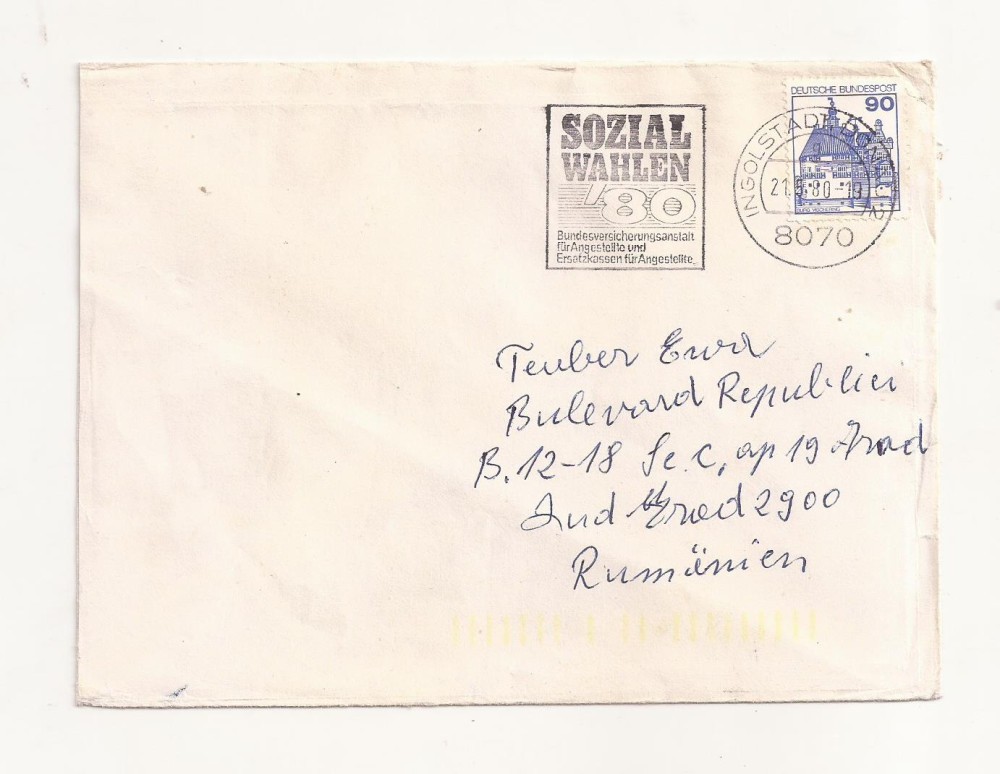 SOZIAL
WAHLEN
'80
Bundesversicherungsanstalt
für Angestellte und
Ersatzkassen für Angestellte
DEUTSCHE BUNDESPOST
90
INGOLSTADT
21.5.80-19
8070
Teuber Ewa
Bulevard Republicii
B. 12-18 Sc. C, ap 19 Arad
Jud Arad 2900
Rumänien